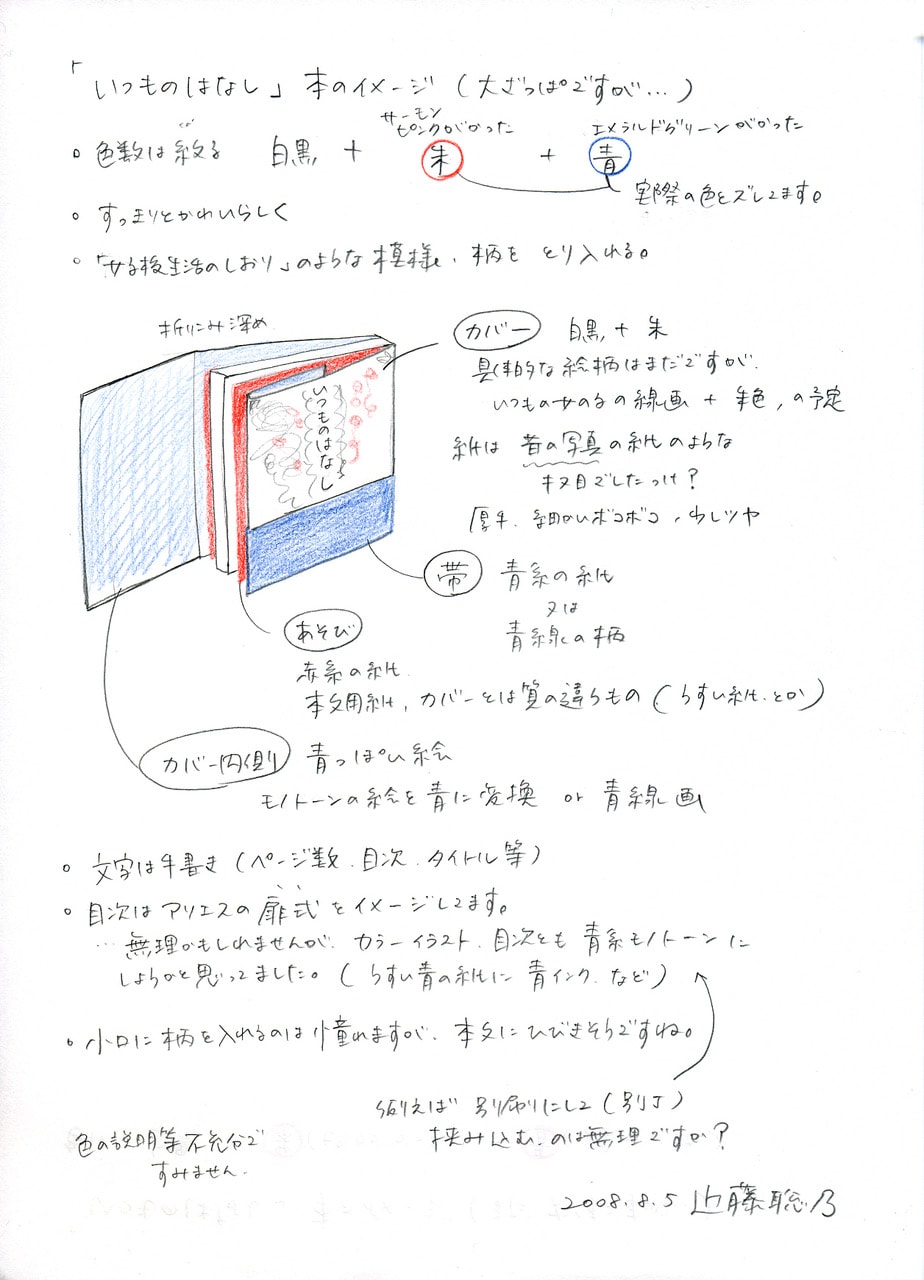 「いつものはなし」 本のイメージ (大ざっぱですが…)
サーモンピンクがかった エメラルドグリーンがかった
。色数は絞る 白黒 + 朱 + 青
実際の色とズレてます。
。すっきりとかわいらしく
。「女子校生活のしおり」のような模様、柄を とり入れる。
折りこみ深め
いつものはなし
カバー 白黒 + 朱
具体的な絵柄はまだですが、
いつもの女の子の線画 + 朱色、の予定
紙は 昔の写真の紙のような
キヌ目でしたっけ?
厚手、細かいボコボコ、少しツヤ
帯 青系の紙
又は
青線の柄
あそび
赤系の紙、
本文用紙、カバーとは質の違うもの (うすい紙、とか)
カバー内側 青っぽい絵
モノトーンの絵を青に変換 or 青線画
。文字は手書き (ページ数、目次、タイトル等)
。目次はアリエスの扉式をイメージしてます。
…無理かもしれませんが、カラーイラスト、目次とも 青系モノトーンに
しようかと思ってました。(うすい青の紙に 青インク、など)
。小口に柄を入れるのは憧れますが、本文にひびきそうですね。
例えば 別刷りにして (別丁)
挟み込む、のは無理ですか?
色の説明等不充分で
すみません、
2008.8.5 近藤聡乃